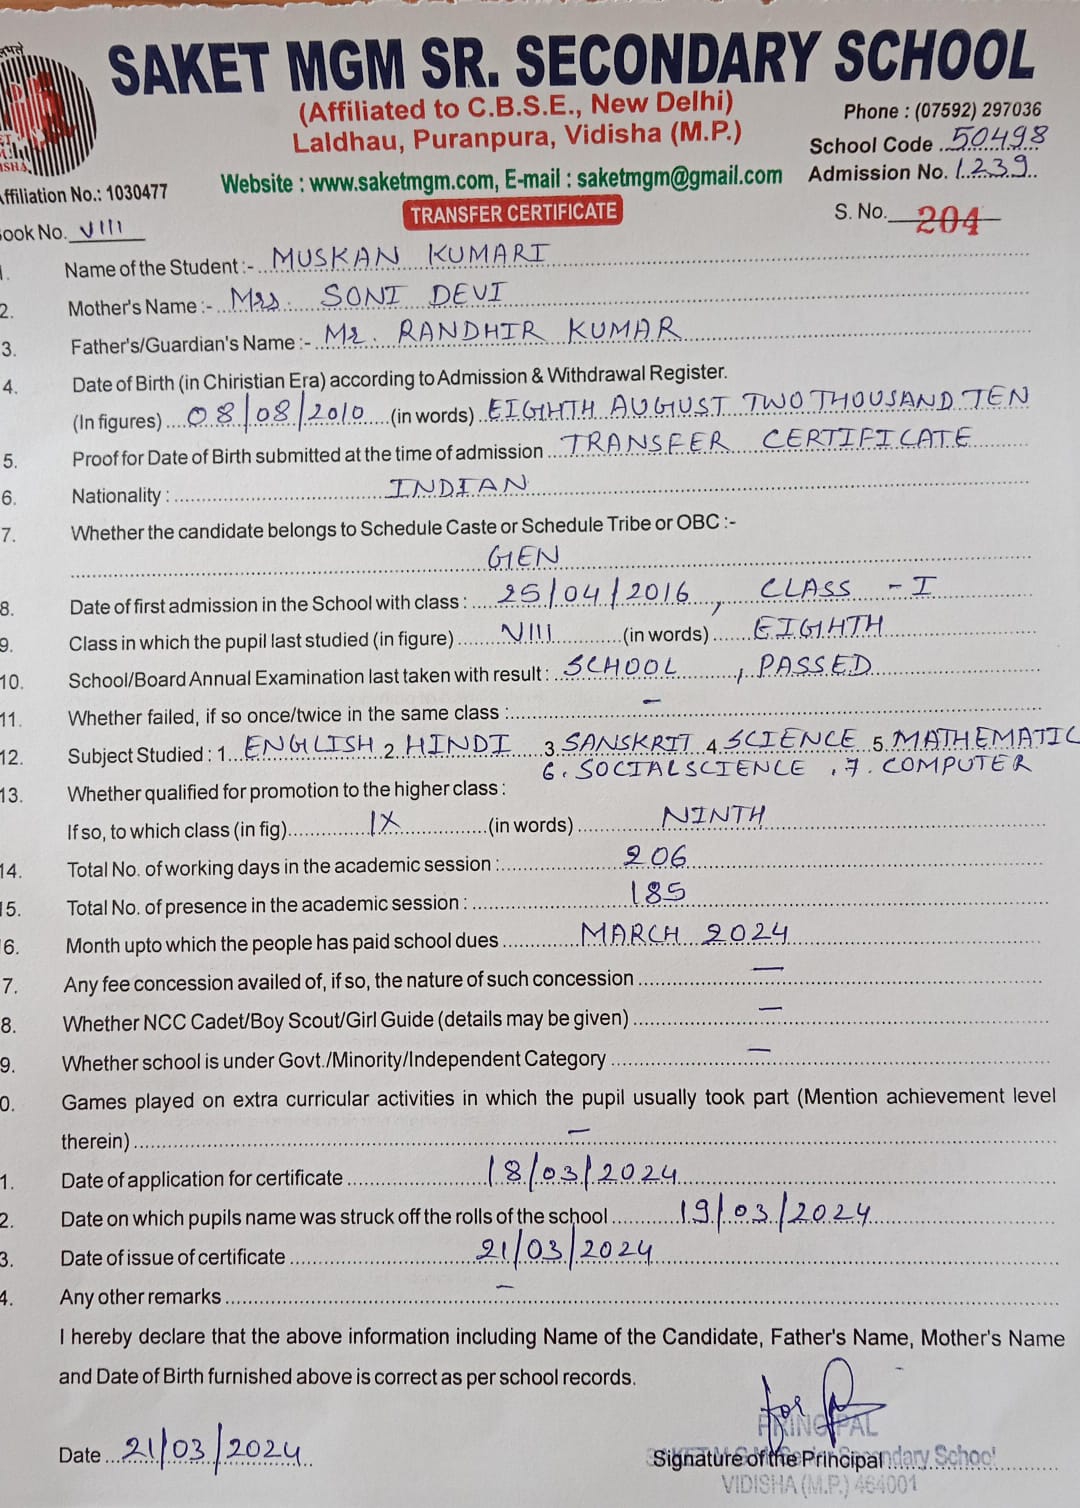 SAKET MGM SR. SECONDARY SCHOOL
(Affiliated to C.B.S.E., New Delhi)
Laldhau, Puranpura, Vidisha (M.P.)
Phone : (07592) 297036
School Code 50498
Website : www.saketmgm.com, E-mail : saketmgm@gmail.com
Admission No. 1239
ffiliation No.: 1030477
TRANSFER CERTIFICATE
S. No. 204
ook No. VIII
1. Name of the Student :- MUSKAN KUMARI
2. Mother's Name :- Mrs. SONI DEVI
3. Father's/Guardian's Name :- Mr. RANDHIR KUMAR
4. Date of Birth (in Chiristian Era) according to Admission & Withdrawal Register.
(In figures) 08/08/2010 (in words) EIGHTH AUGUST TWO THOUSAND TEN
5. Proof for Date of Birth submitted at the time of admission TRANSFER CERTIFICATE
6. Nationality : INDIAN
7. Whether the candidate belongs to Schedule Caste or Schedule Tribe or OBC :-
GEN
8. Date of first admission in the School with class : 25/04/2016, CLASS - I
9. Class in which the pupil last studied (in figure) VIII (in words) EIGHTH
10. School/Board Annual Examination last taken with result : SCHOOL, PASSED
11. Whether failed, if so once/twice in the same class : -
12. Subject Studied : 1. ENGLISH 2. HINDI 3. SANSKRIT 4. SCIENCE 5. MATHEMATIC
6. SOCIAL SCIENCE , 7. COMPUTER
13. Whether qualified for promotion to the higher class :
If so, to which class (in fig) IX (in words) NINTH
14. Total No. of working days in the academic session : 206
15. Total No. of presence in the academic session : 185
6. Month upto which the people has paid school dues MARCH 2024
7. Any fee concession availed of, if so, the nature of such concession —
8. Whether NCC Cadet/Boy Scout/Girl Guide (details may be given) —
9. Whether school is under Govt./Minority/Independent Category —
0. Games played on extra curricular activities in which the pupil usually took part (Mention achievement level
therein) —
1. Date of application for certificate 18/03/2024
2. Date on which pupils name was struck off the rolls of the school 19/03/2024
3. Date of issue of certificate 21/03/2024
4. Any other remarks —
I hereby declare that the above information including Name of the Candidate, Father's Name, Mother's Name
and Date of Birth furnished above is correct as per school records.
for
PRINCIPAL
Date 21/03/2024
Signature of the Principal
Secondary School
VIDISHA (M.P.) 464001